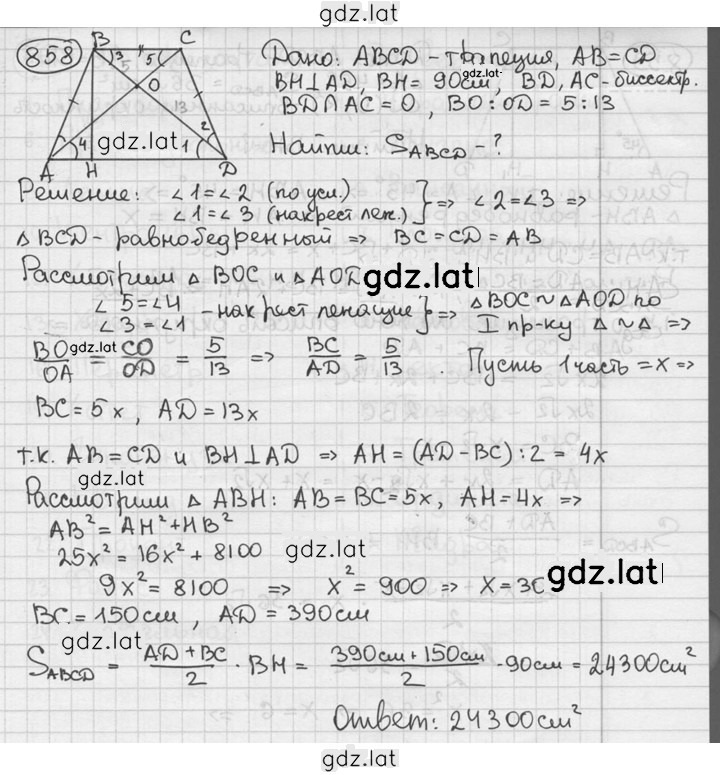 gdz.lat
858
B C
3 5
5
O
13
gdz.lat
4 1 2
A H D
Дано: ABCD - трапеция, AB = CD
BH⊥AD, BH = 90см, BD, AC - биссектр.
gdz.lat
BD∩AC = O, BO : OD = 5 : 13
Найти: S_ABCD - ?
Решение: ∠1 = ∠2 (по усл.)
∠1 = ∠3 (накрест леж.) } => ∠2 = ∠3 =>
△ BCD - равнобедренный => BC = CD = AB
Рассмотрим △ BOC и △ AOD
gdz.lat
∠5 = ∠4
∠3 = ∠1 - накрест лежащие } => △BOC ~ △AOD по
I пр-ку △ ~ △ =>
BO/OA = CO/OD = 5/13 => BC/AD = 5/13. Пусть 1 часть = x =>
gdz.lat
BC = 5x, AD = 13x
т.к. AB = CD и BH⊥AD => AH = (AD - BC) : 2 = 4x
gdz.lat
Рассмотрим △ ABH: AB = BC = 5x, AH = 4x =>
AB² = AH² + HB²
25x² = 16x² + 8100
gdz.lat
9x² = 8100 => x² = 900 => x = 30
gdz.lat
BC = 150см, AD = 390см
gdz.lat
S_ABCD = (AD + BC)/2 · BH = (390см + 150см)/2 · 90см = 24300см²
Ответ: 24300см²
gdz.lat